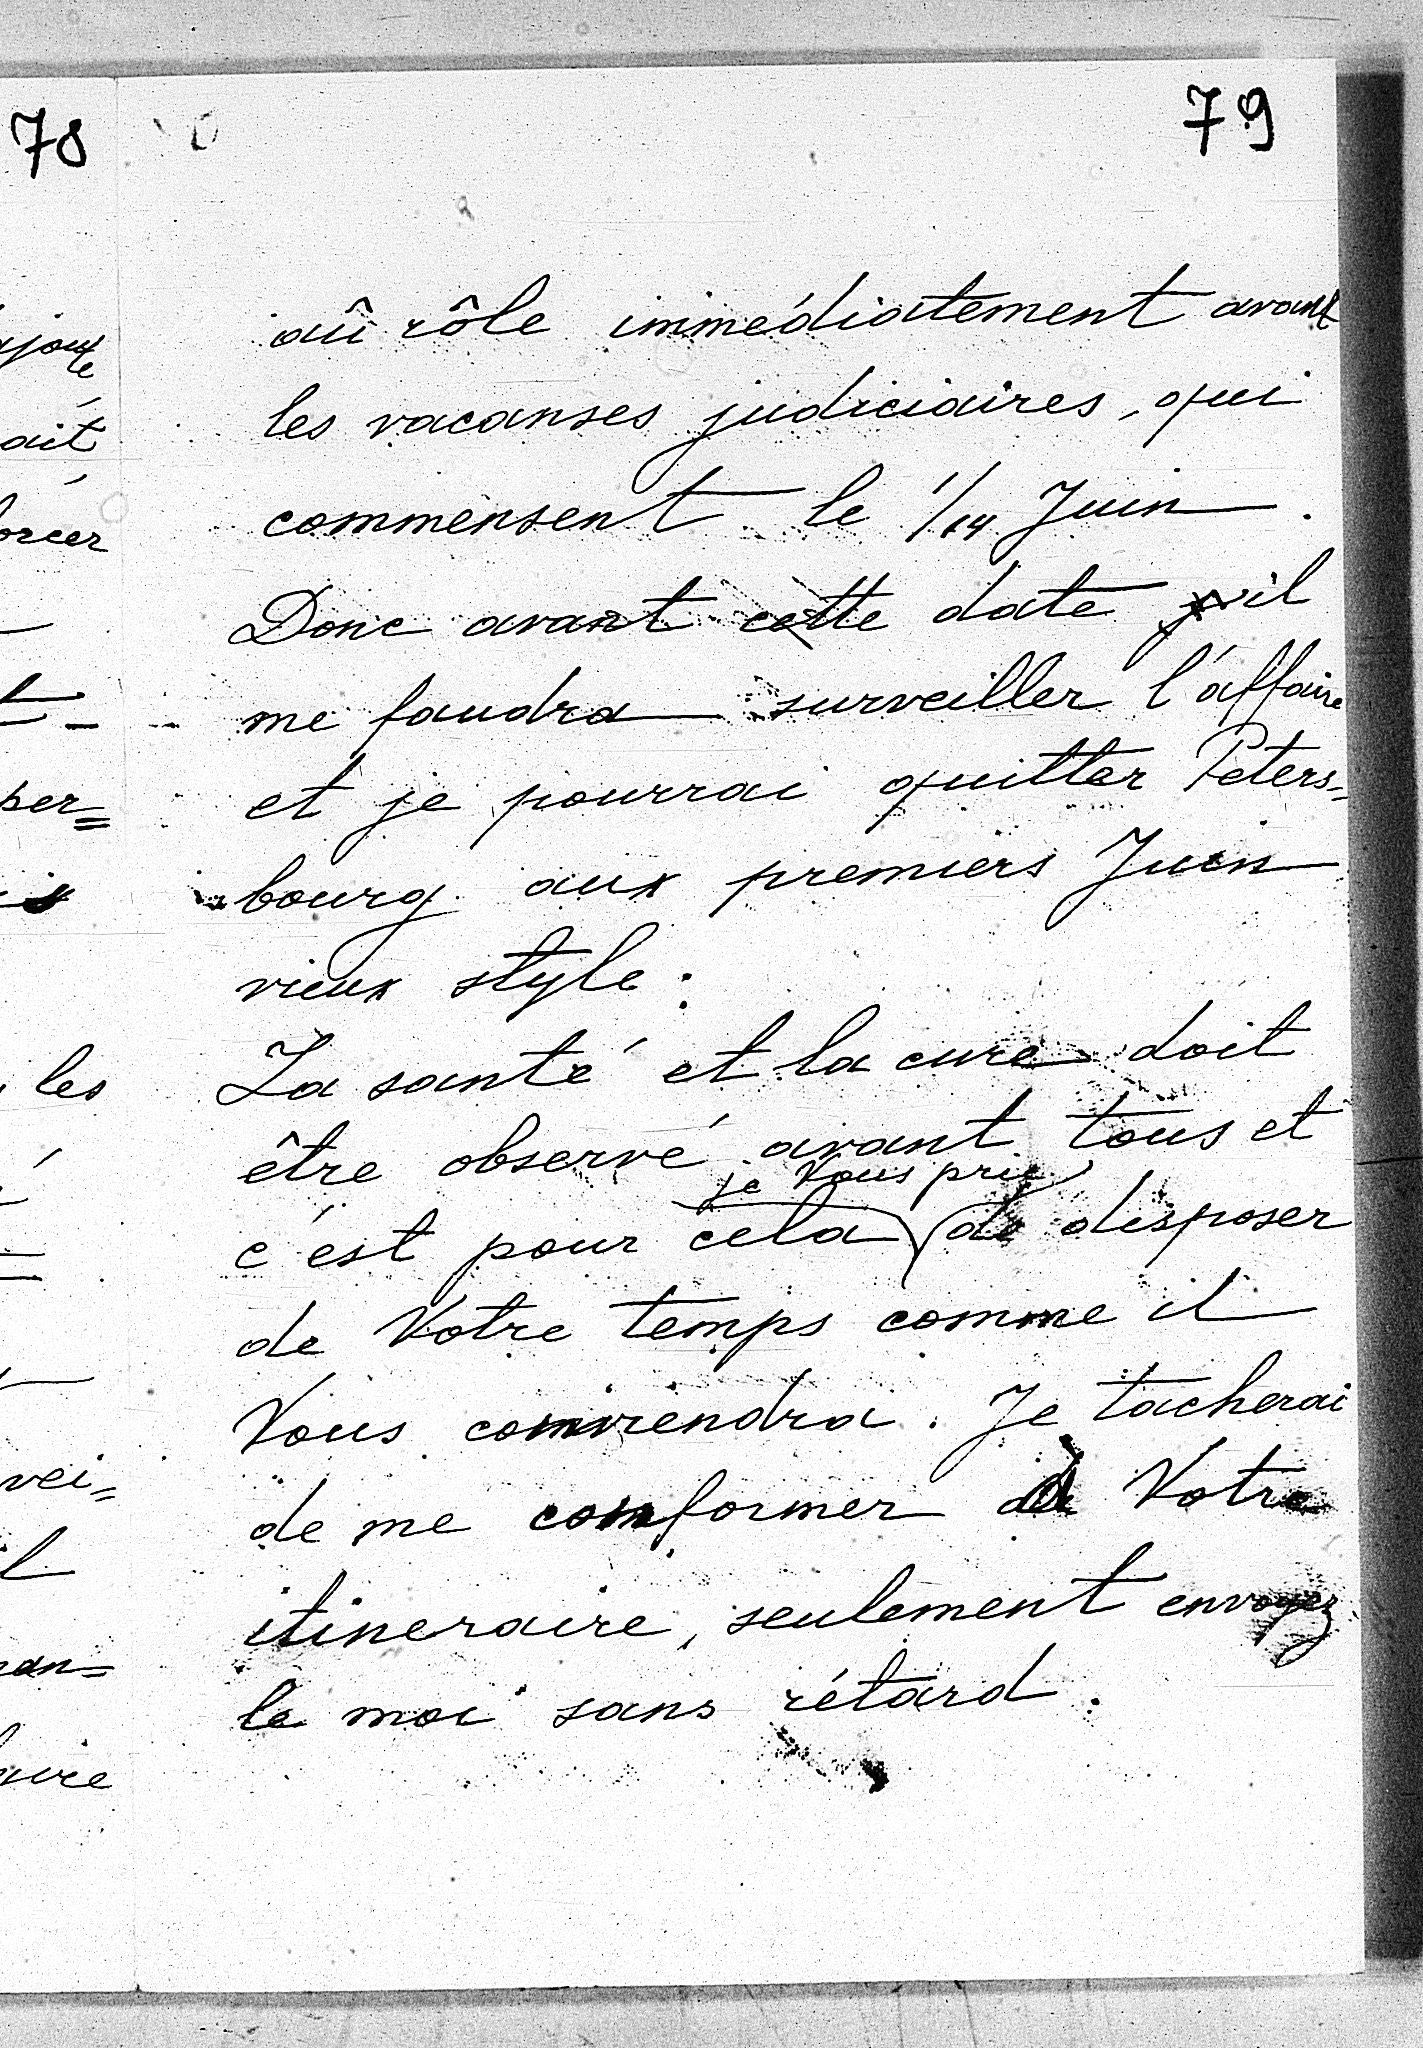 78
79
aû rôle immédiatement avant
les vacanses judiciaires, qui
commensent le 1/14 Juin.
Donc avant cette date il
me faudra surveiller l'affaire
et je pourrai quitter Peters=
bourg aux premiers Juin
vieux style.
La santé et la cure doit
être observé avant tous et
je Vous prie
c'est pour cela de disposer
de Votre temps comme il
Vous conviendra. Je tacherai
de me conformer à Votre
itineraire, seulement envoyez
le moi sans rétard.
ajoute
ait
orcer
per=
les
vei=
man=
aire